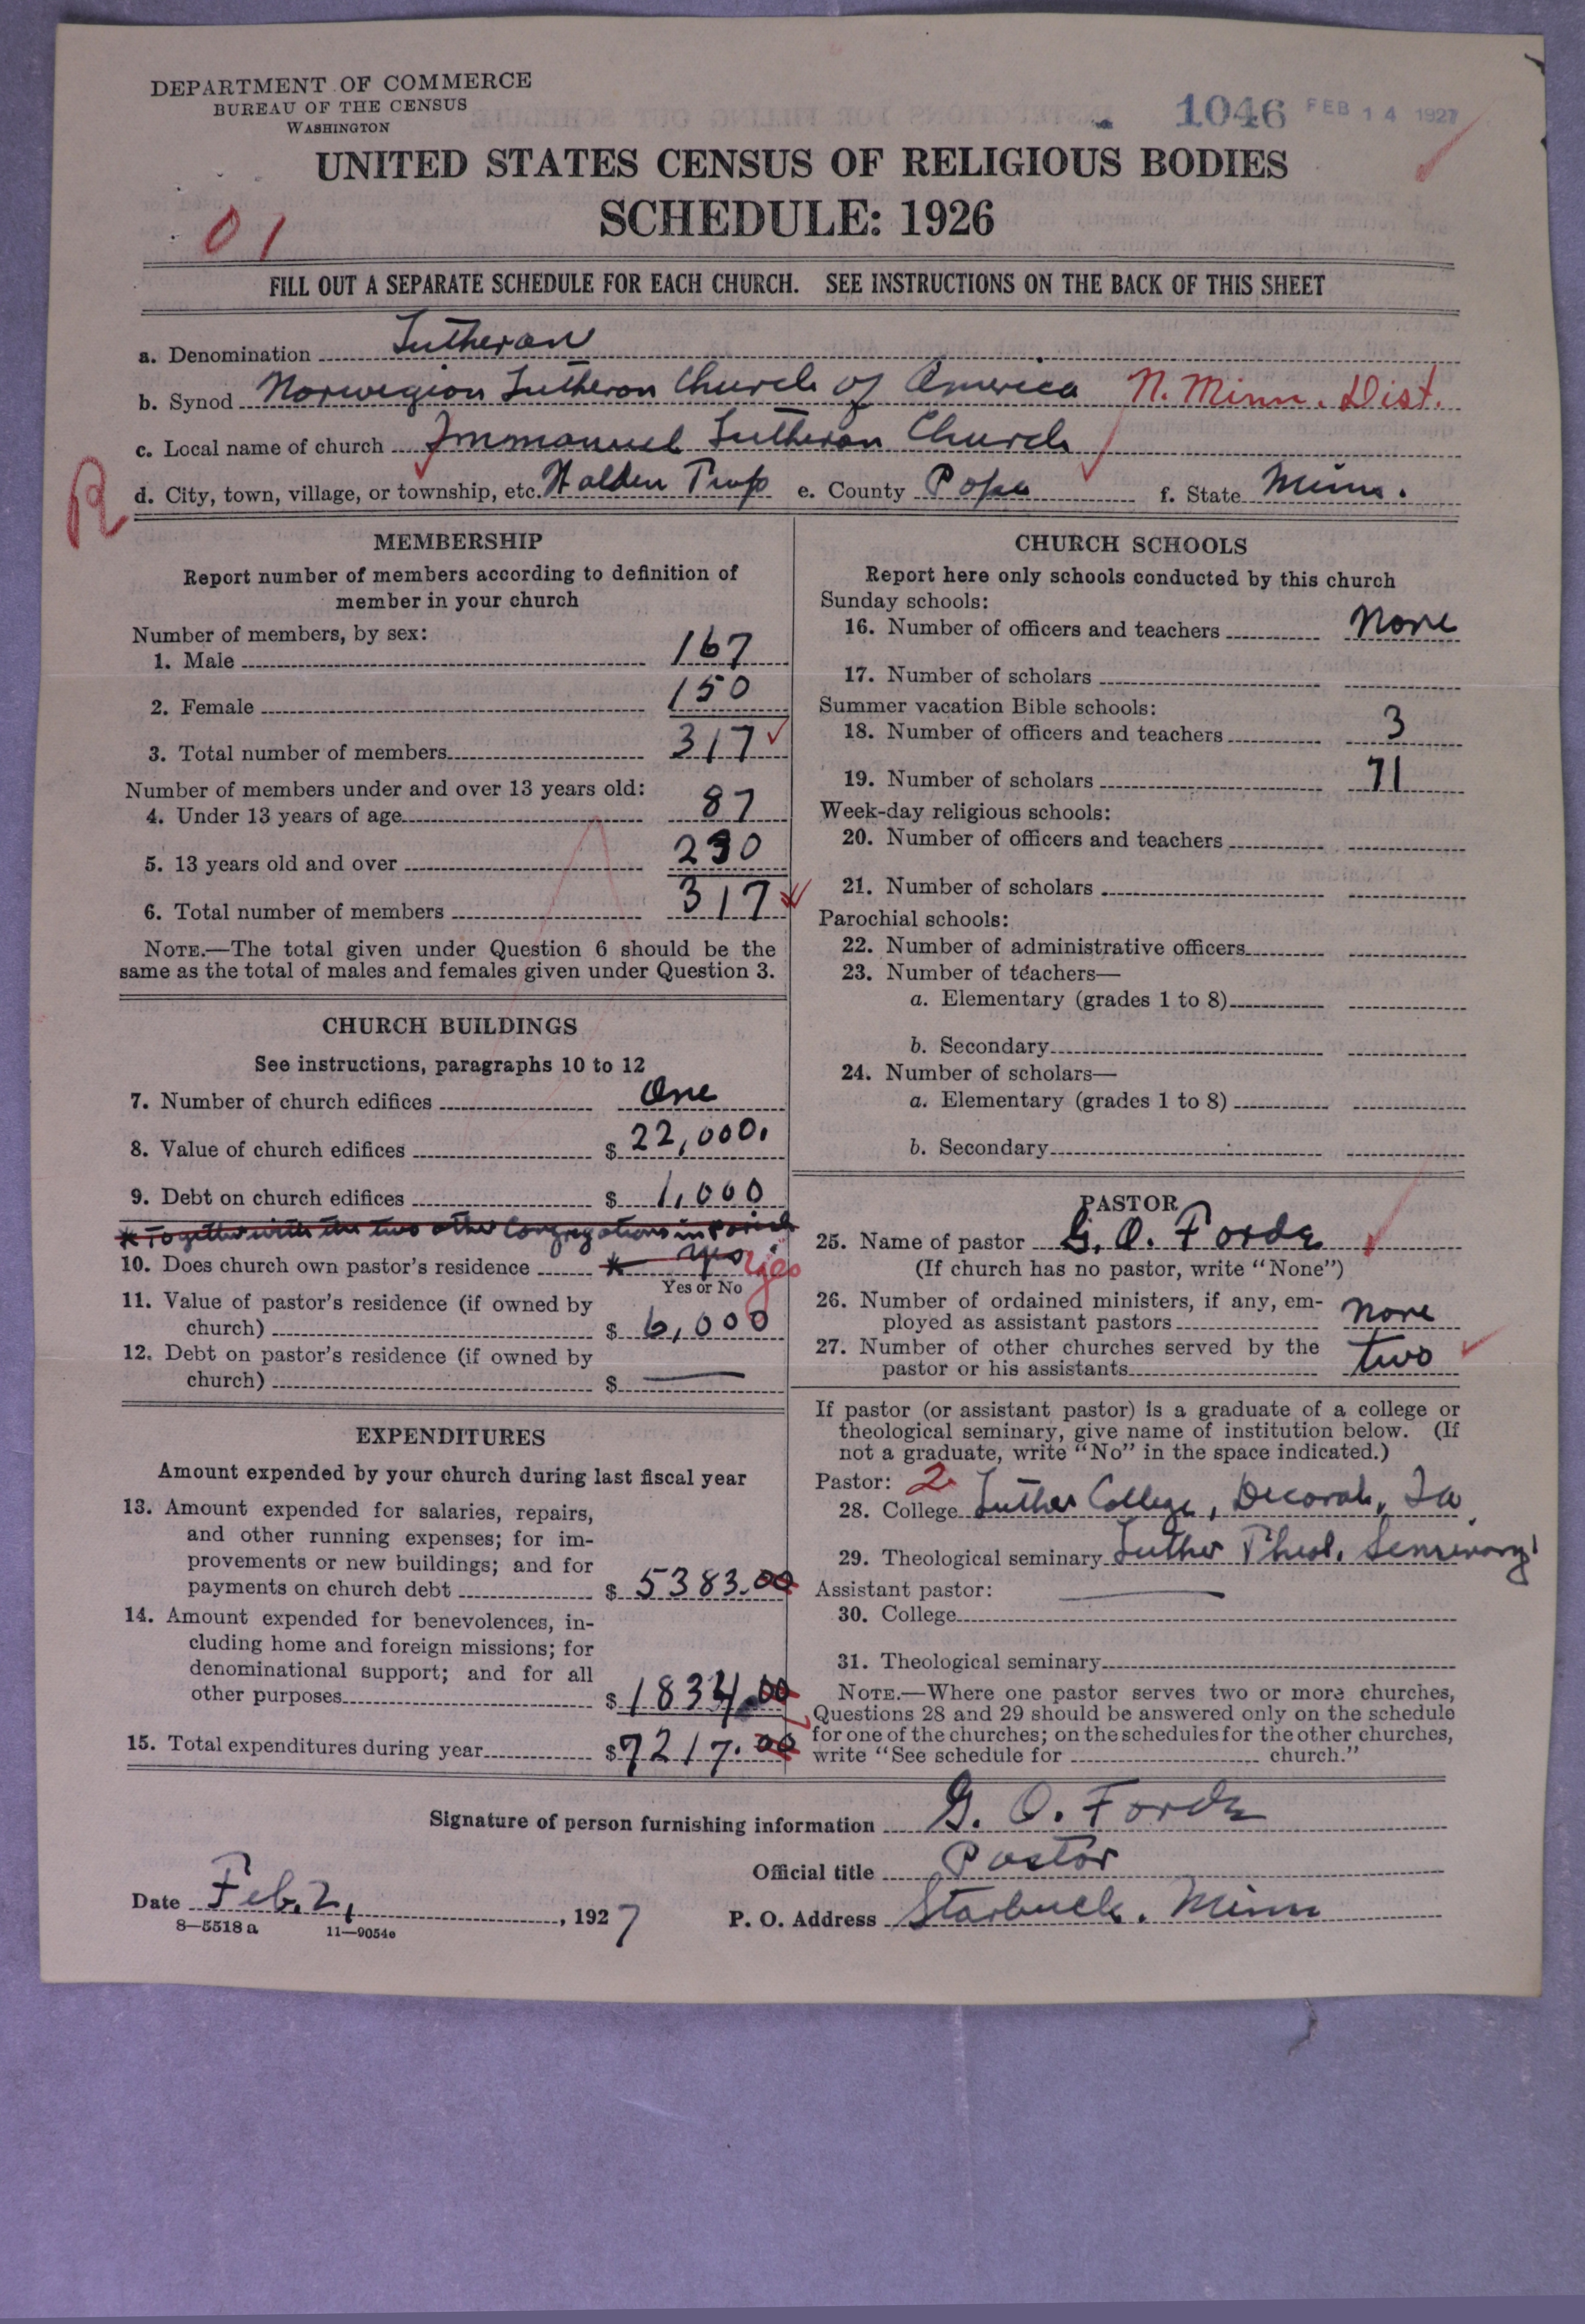 DEPARTMENT OF COMMERCE
BUREAU OF THE CENSUS
WASHINGTON
1046 FEB 14 1927
UNITED STATES CENSUS OF RELIGIOUS BODIES
SCHEDULE: 1926
01
FILL OUT A SEPARATE SCHEDULE FOR EACH CHURCH. SEE INSTRUCTIONS ON THE BACK OF THIS SHEET
a. Denomination Lutheran
b. Synod Norwegian Lutheran Church of America N. Minn. Dist.
c. Local name of church Immanuel Lutheran Church
R
d. City, town, village, or township, etc. Walden Twp e. County Pope f. State Minn.
MEMBERSHIP
Report number of members according to definition of
member in your church
Number of members, by sex:
1. Male 167
2. Female 150
3. Total number of members 317
Number of members under and over 13 years old:
4. Under 13 years of age 87
5. 13 years old and over 230
6. Total number of members 317
NOTE.—The total given under Question 6 should be the
same as the total of males and females given under Question 3.
CHURCH BUILDINGS
See instructions, paragraphs 10 to 12
7. Number of church edifices One
8. Value of church edifices $ 22,000.
9. Debt on church edifices $ 1,000
* Together with the two other Congregations in Parish
10. Does church own pastor's residence * yes yes
Yes or No
11. Value of pastor's residence (if owned by
church) $ 6,000
12. Debt on pastor's residence (if owned by
church) $ —
EXPENDITURES
Amount expended by your church during last fiscal year
13. Amount expended for salaries, repairs,
and other running expenses; for im-
provements or new buildings; and for
payments on church debt $ 5383.00
14. Amount expended for benevolences, in-
cluding home and foreign missions; for
denominational support; and for all
other purposes $ 1834.00
15. Total expenditures during year $ 7217.00
CHURCH SCHOOLS
Report here only schools conducted by this church
Sunday schools:
16. Number of officers and teachers None
17. Number of scholars
Summer vacation Bible schools:
18. Number of officers and teachers 3
19. Number of scholars 71
Week-day religious schools:
20. Number of officers and teachers
21. Number of scholars
Parochial schools:
22. Number of administrative officers
23. Number of teachers—
a. Elementary (grades 1 to 8)
b. Secondary
24. Number of scholars—
a. Elementary (grades 1 to 8)
b. Secondary
PASTOR
25. Name of pastor G. O. Forde
(If church has no pastor, write "None")
26. Number of ordained ministers, if any, em-
ployed as assistant pastors None
27. Number of other churches served by the
pastor or his assistants two
If pastor (or assistant pastor) is a graduate of a college or
theological seminary, give name of institution below. (If
not a graduate, write "No" in the space indicated.)
Pastor: 2
28. College Luther College, Decorah, Ia
29. Theological seminary Luther Theol. Seminary
Assistant pastor: —
30. College
31. Theological seminary
NOTE.—Where one pastor serves two or more churches,
Questions 28 and 29 should be answered only on the schedule
for one of the churches; on the schedules for the other churches,
write "See schedule for church."
Signature of person furnishing information G. O. Forde
Official title Pastor
Date Feb. 2, , 1927
P. O. Address Starbuck, Minn
8—5518 a 11—9054c